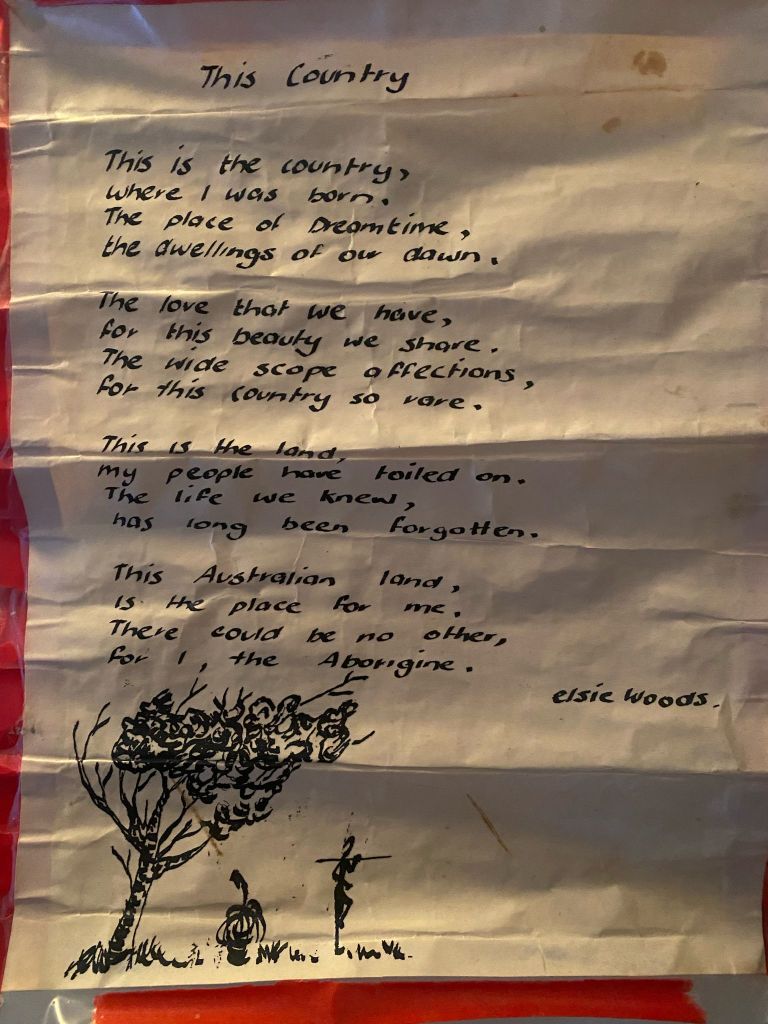 This Country
This is the country,
where I was born.
The place of Dreamtime,
the dwellings of our dawn.
The love that we have,
for this beauty we share.
The wide scope affections,
for this country so rare.
This is the land,
my people have toiled on.
The life we knew,
has long been forgotten.
This Australian land,
is the place for me.
There could be no other,
for I, the Aborigine.
elsie Woods.